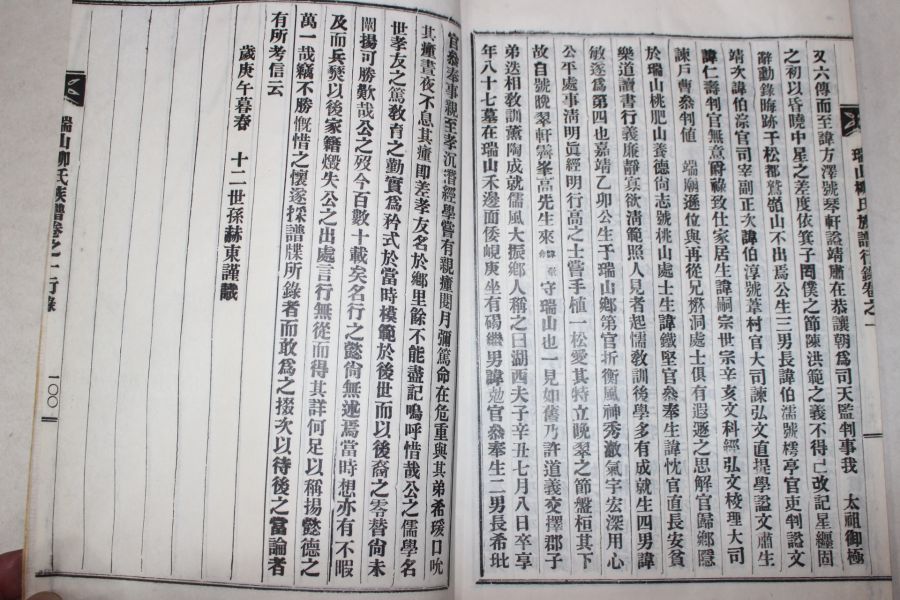 瑞山柳氏族譜行錄卷之一
又六傳而至諱方澤號琴軒諡靖肅在恭讓朝爲司天監判事我 太祖御極
之初以昏曉中星之差度依箕子罔僕之節陳洪範之義不得已改記星纏固
辭勳錄晦跡于松都鵞嶺山不出焉公生三男長諱伯濡號樗亭官吏判諡文
靖次諱伯淙官司宰副正次諱伯淳號葦村官大司諫弘文直提學諡文肅生
諱仁壽判官無意爵祿致仕家居生諱嗣宗世宗辛亥文科經弘文校理大司
諫戶曹叅判値 端廟遜位與再從兄 洞處士俱有遐遯之思解官歸鄉隱
於瑞山桃肥山養德尙志號桃山處士生諱鐵堅官叅奉生諱忱官直長安貧
樂道讀書行義廉靜寡欲淸範照人見者起懦敎訓後學多有成就生四男諱
敏遂爲第四也嘉靖乙卯公生于瑞山鄉第官折衡風神秀澈氣宇宏深用心
公平處事淸明眞經明行高之士嘗手植一松愛其特立晚翠之節盤桓其下
故自號晚翠軒霽峯高先生來 守瑞山也一見如舊乃許道義交擇郡子
弟迭相敎訓薰陶成就儒風大振鄉人稱之曰湖西夫子辛丑七月八日卒享
年八十七墓在瑞山禾邊面倭峴庚坐有碣繼男諱勉官叅奉生二男長希玭
官叅奉事親至孝沉潛經學嘗有親癉閱月彌篤命在危重與其弟希瑗口吮
其癉晝夜不息其癉卽差孝友名於鄉里餘不能盡記嗚呼惜哉公之儒學名
世孝友之篤敎育之勤實爲矜式於當時模範於後世而以後裔之零替尙未
闡揚可勝歎哉公之歿今百數十載矣名行之懿尙無述焉當時想亦有不暇
及而兵燹以後家籍燬失公之出處言行無從而得其詳何足以稱揚懿德之
萬一哉竊不勝慨惜之懷遂採譜牒所錄者而敢爲之掇次以待後之當論者
有所考信云
歲庚午暮春 十二世孫赫東謹識
瑞山柳氏族譜卷之一行錄
一〇〇